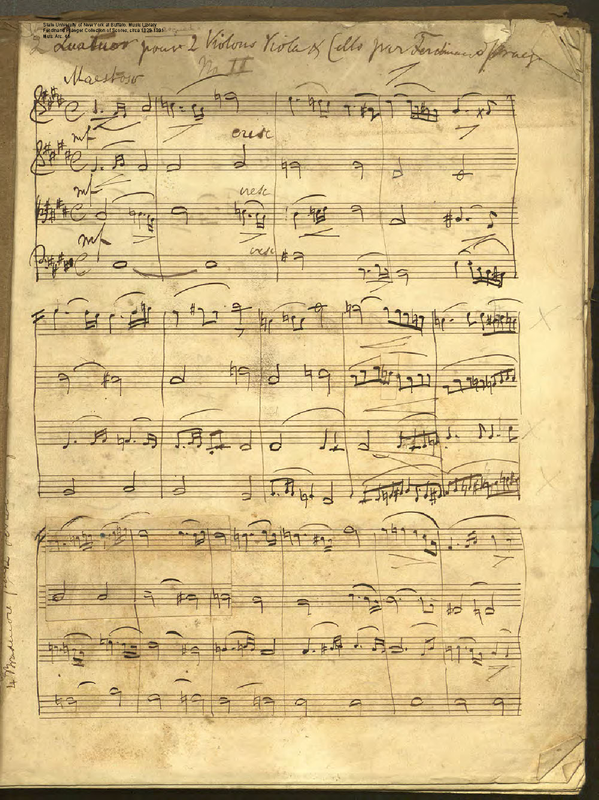 State University of New York at Buffalo, Music Library
Ferdinand Praeger Collection of Scores, circa 1829-1891
Mus. Arc.
2 Quatuor pour 2 Violons Viola & Cello par Ferdinand Praeger
No II
Maestoso
mf
cresc
mf
cresc
mf
cresc